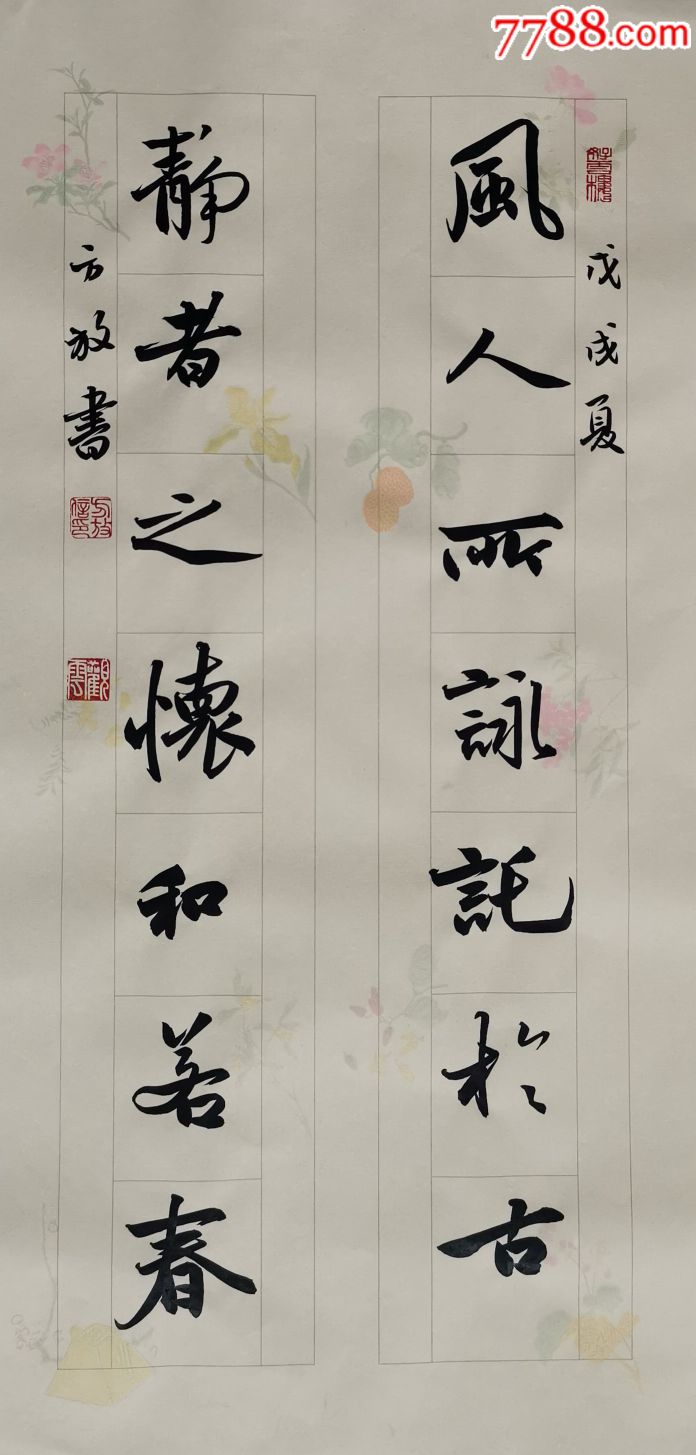 7788.com
戊戌夏
風人所詠託於古
靜者之懷和若春
方放書
方放信印
觀雲